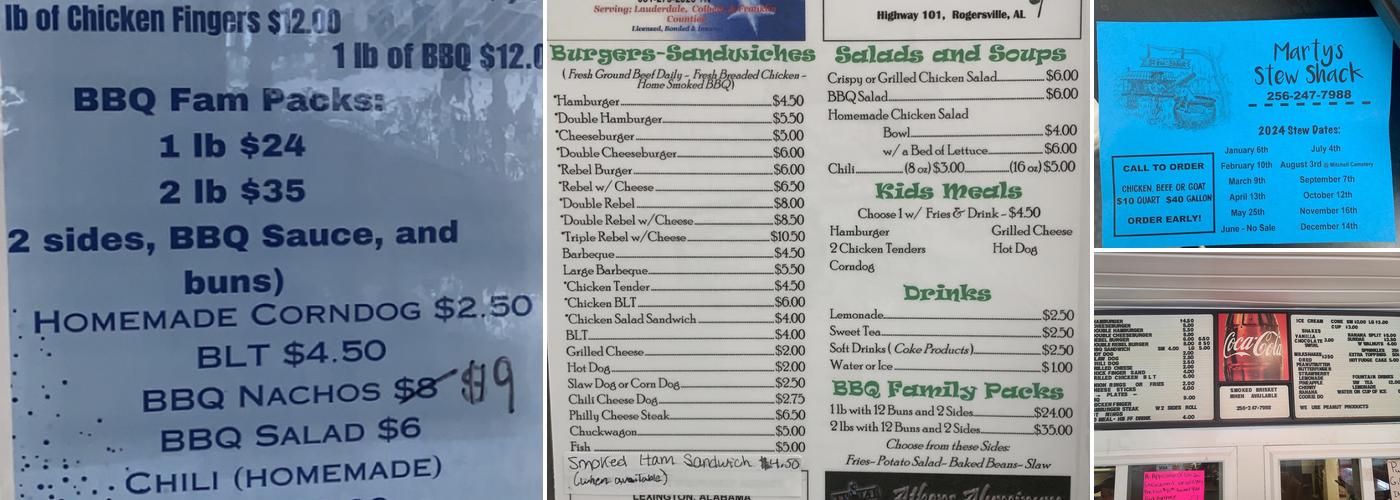 lb of Chicken Fingers $12.00
1 lb of BBQ $12.0
BBQ Fam Packs:
1 lb $24
2 lb $35
2 sides, BBQ Sauce, and
buns)
HOMEMADE CORNDOG $2.50
BLT $4.50
BBQ NACHOS $8 $19
BBQ SALAD $6
CHILI (HOMEMADE)
Serving: Lauderdale, Colbert & Franklin
Counties
Licensed, Bonded &
Burgers-Sandwiches
( Fresh Ground Beef Daily - Fresh Breaded Chicken -
Home Smoked BBQ)
*Hamburger $4.50
*Double Hamburger $5.50
*Cheeseburger $5.00
*Double Cheeseburger $6.00
*Rebel Burger $6.00
*Rebel w/ Cheese $6.50
*Double Rebel $8.00
*Double Rebel w/Cheese $8.50
*Triple Rebel w/Cheese $10.50
Barbeque $4.50
Large Barbeque $5.50
*Chicken Tender $4.50
*Chicken BLT $6.00
*Chicken Salad Sandwich $4.00
BLT $4.00
Grilled Cheese $2.00
Hot Dog $2.00
Slaw Dog or Corn Dog $2.50
Chili Cheese Dog $2.75
Philly Cheese Steak $6.50
Chuckwagon $5.00
Fish $5.00
Smoked Ham Sandwich $4.50
(when available)
LEXINGTON, ALABAMA
Highway 101, Rogersville, AL
Salads and Soups
Crispy or Grilled Chicken Salad $6.00
BBQ Salad $6.00
Homemade Chicken Salad
Bowl $4.00
w/ a Bed of Lettuce $6.00
Chili (8 oz) $3.00 (16 oz) $5.00
Kids Meals
Choose 1 w/ Fries & Drink - $4.50
Hamburger Grilled Cheese
2 Chicken Tenders Hot Dog
Corndog
Drinks
Lemonade $2.50
Sweet Tea $2.50
Soft Drinks ( Coke Products) $2.50
Water or Ice $1.00
BBQ Family Packs
1 lb with 12 Buns and 2 Sides $24.00
2 lbs with 12 Buns and 2 Sides $35.00
Choose from these Sides:
Fries- Potato Salad- Baked Beans- Slaw
Martys
Stew Shack
256-247-7988
2024 Stew Dates:
January 6th July 4th
February 10th August 3rd @ Mitchell Cemetery
March 9th September 7th
April 13th October 12th
May 25th November 16th
June - No Sale December 14th
CALL TO ORDER
CHICKEN, BEEF, OR GOAT
$10 QUART $40 GALLON
ORDER EARLY!
Coca-Cola
SMOKED BRISKET
WHEN AVAILABLE
256-247-7988
ICE CREAM CONE SM $2.00 LG $3.00
CUP $3.00
SHAKES
VANILLA
CHOCOLATE
SWIRL
BANANA SPLIT
SUNDAE
EXTRA TOPPINGS
HOT FUDGE CAKE
MILKSHAKES
OREO
PEANUTBUTTER
BUTTERFINGER
STRAWBERRY
PINEAPPLE
CHERRY
COOKIE DO
FOUNTAIN DRINKS
LEMONADE
WE USE PEANUT PRODUCTS